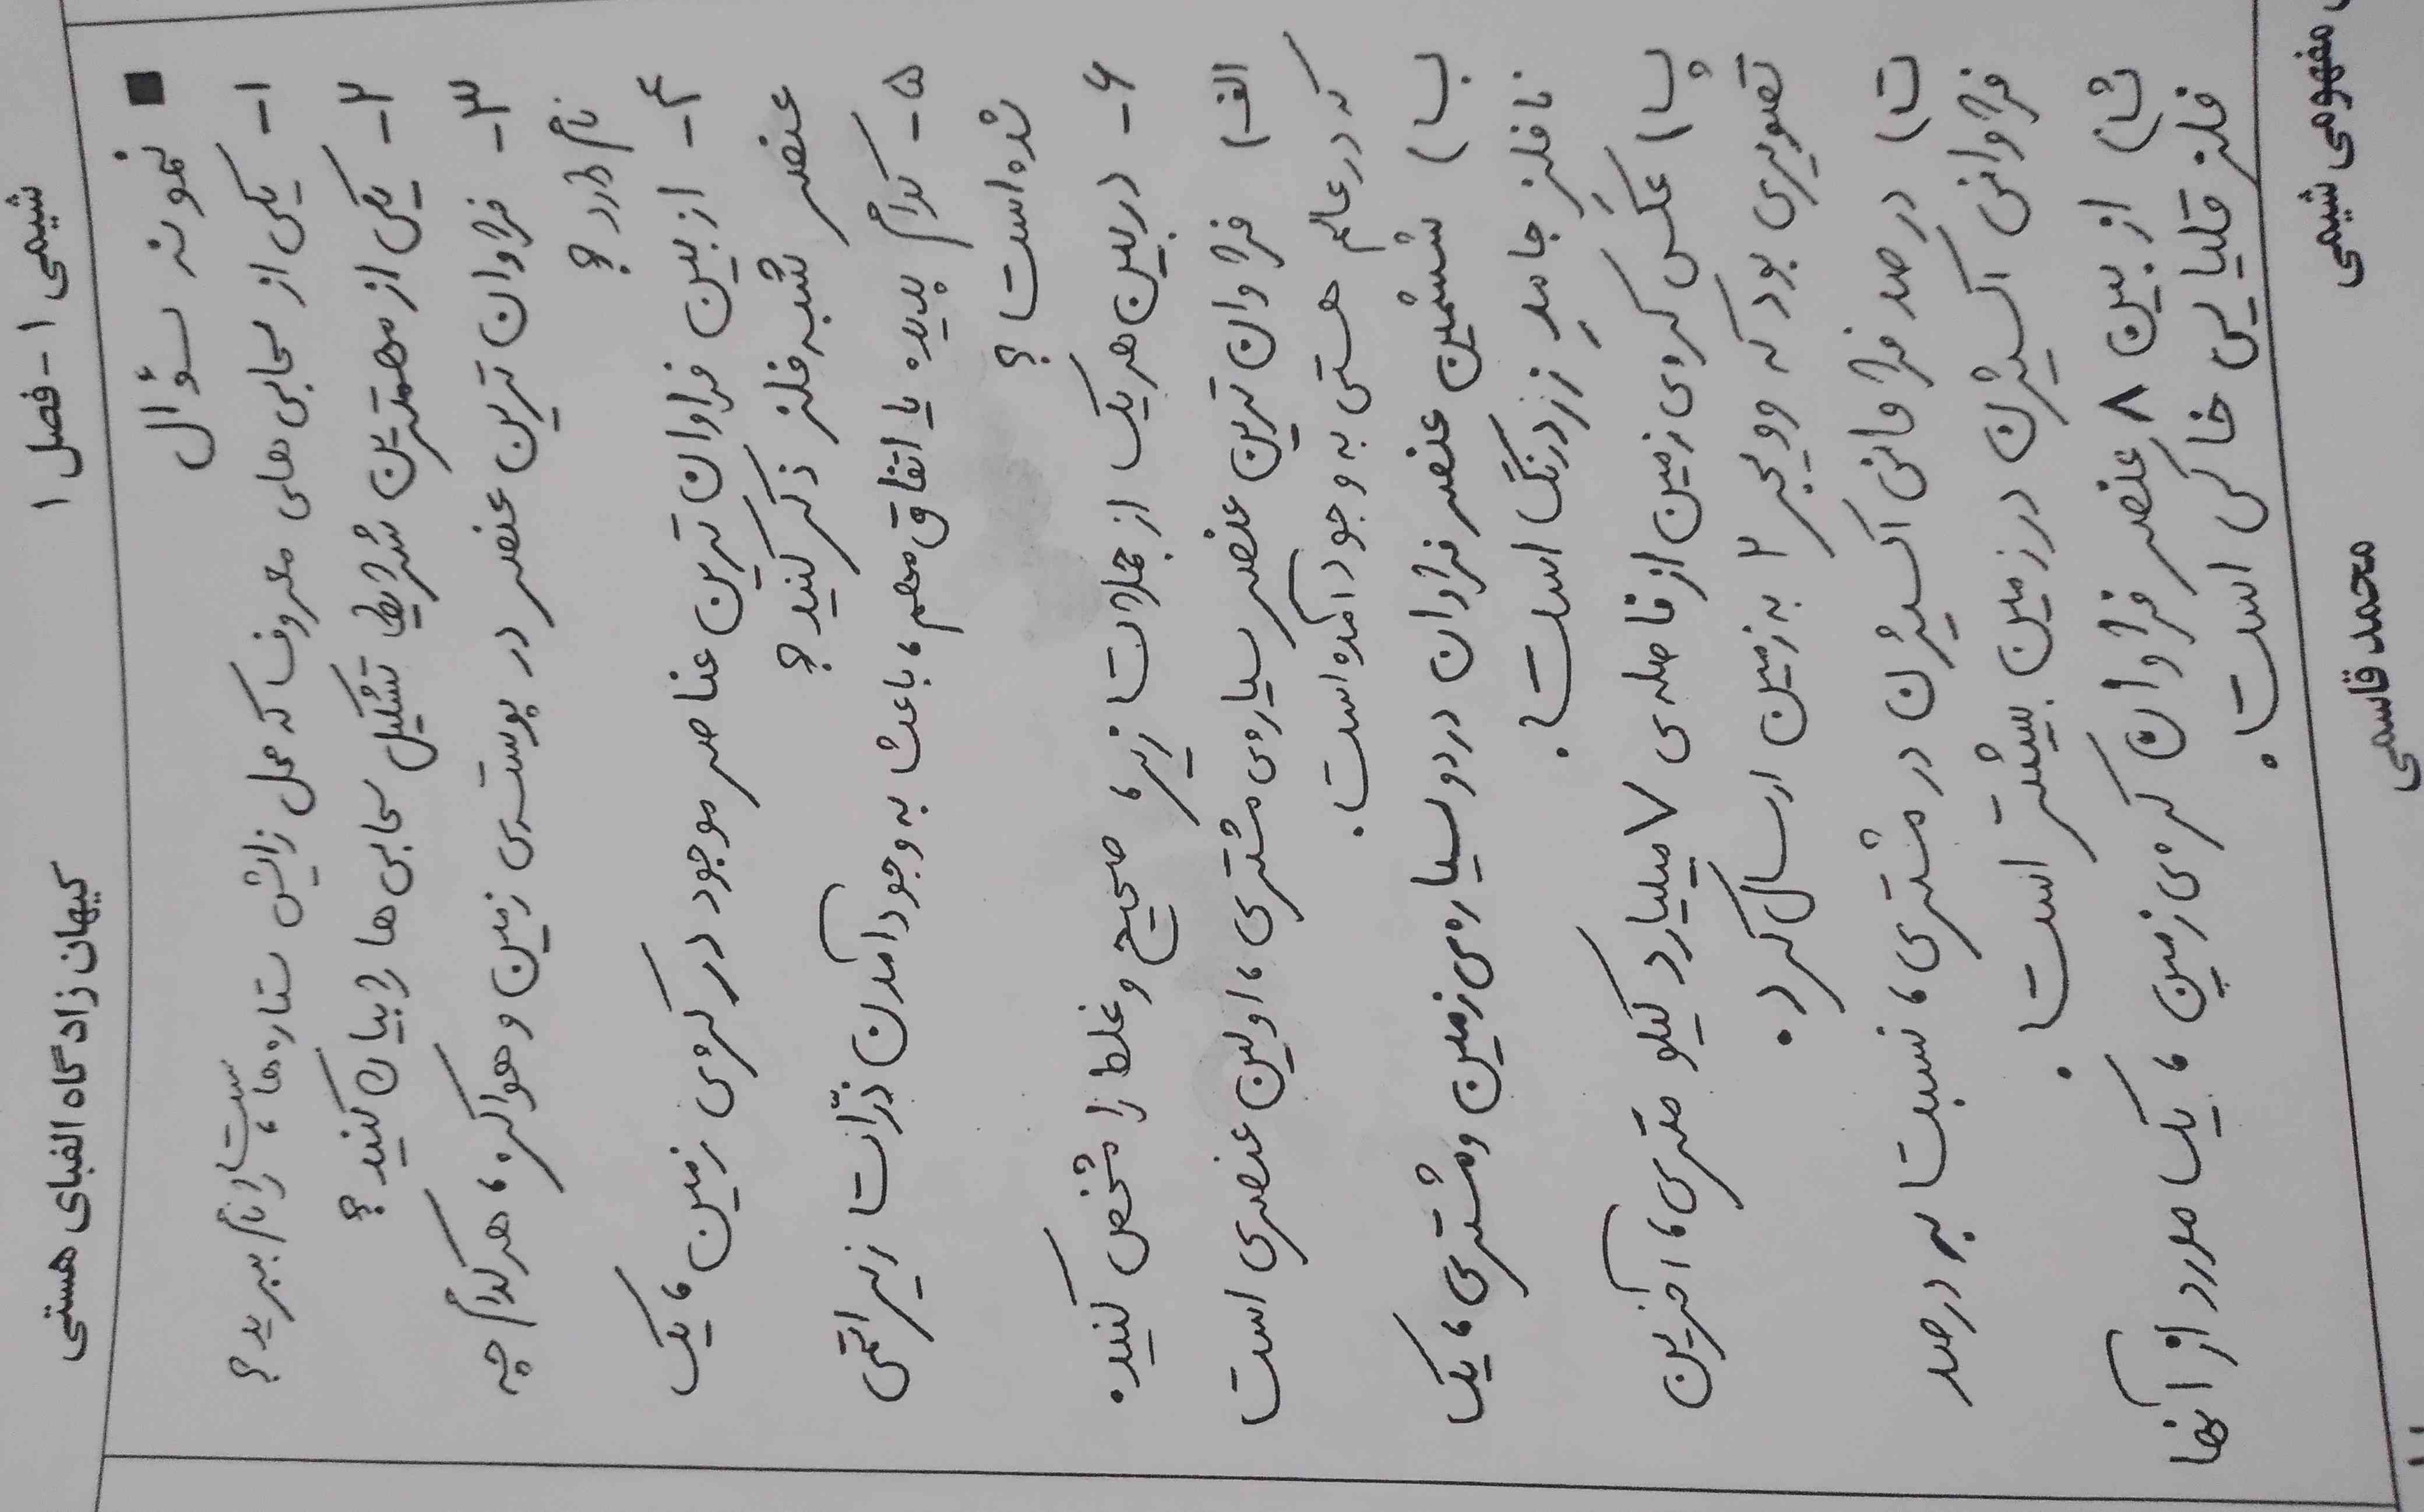 شیمی ۱ - فصل ۱
کیهان زادگاه الفبای هستی
■ نمونه سؤال
۱- یکی از سحابی های معروف که محل زایش ستاره ها ست، را نام ببرید؟
۲- یکی از مهمترین شرایط تشکیل سحابی ها را بیان کنید؟
۳- فراوان ترین عنصر در پوسته ی زمین و هواکره، هرکدام چه
نام دارد؟
۴- از بین فراوان ترین عناصر موجود در کره ی زمین، یک
عنصر شبه فلز ذکر کنید؟
۵- کدام پدیده یا اتفاق مهم، باعث به وجود آمدن ذرّات زیر اتمی
شده است؟
۶- در بین هریک از جملات زیر، صحیح و غلط را مشخص کنید.
الف) فراوان ترین عنصر سیاره ی مشتری، اولین عنصری است
که در عالم هستی به وجود آمده است.
ب) ششمین عنصر فراوان در دو سیاره ی زمین و مشتری، یک
نافلز جامدِ زردرنگ است.
پ) عکس کره ی زمین از فاصله ی ۷ میلیارد کیلومتری، آخرین
تصویری بود که وویجر ۲ به زمین ارسال کرد.
ت) درصد فراوانی اکسیژن در مشتری، نسبت به درصد
فراوانی اکسیژن در زمین بیشتر است.
ث) از بین ۸ عنصر فراوان کره ی زمین، یک مورد از آنها
فلز قلیایی خاکی است.
مفهومی شیمی
محمد قاسمی